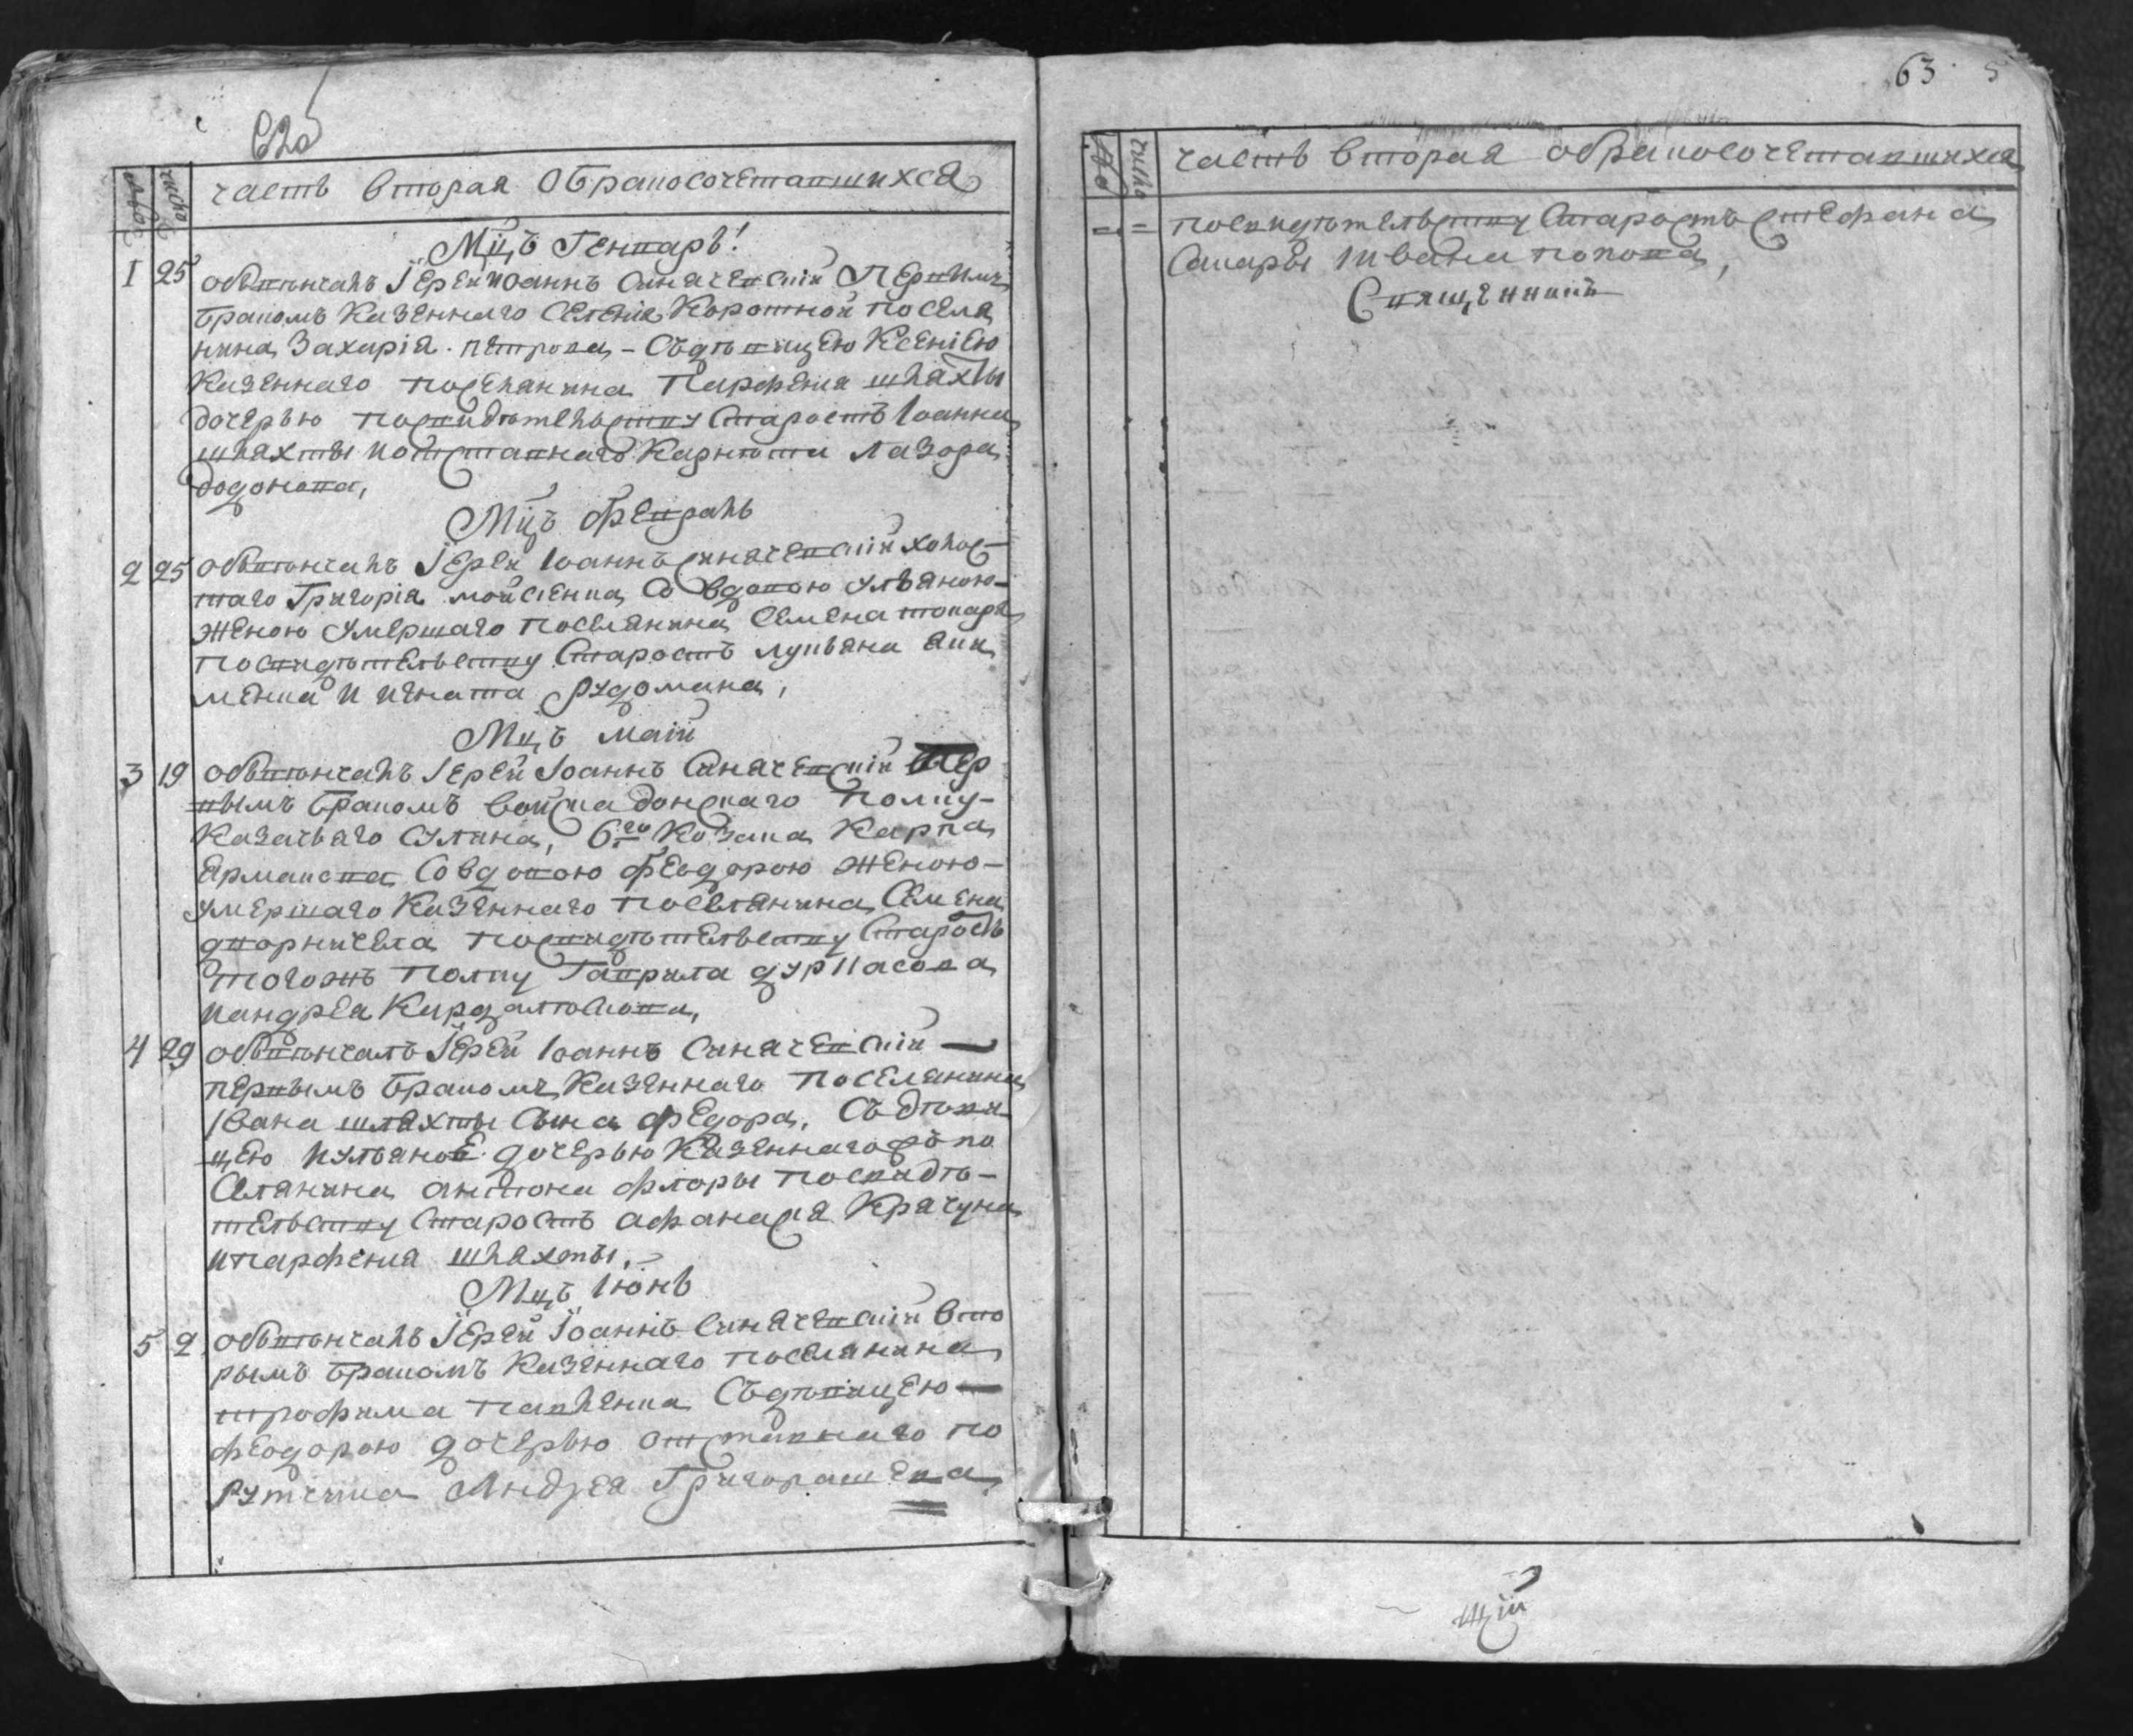 часть вторая Обракосочетавшихся
число
Мцъ Генварь!
1 25 обвѣнчалъ Іерей Иоаннъ Синячевскій Первымъ
бракомъ Казеннаго Селенія Коротной поселя
нина Захарія Петрова - Съдѣвицею Ксеніею
Казеннаго поселянина Парфенія шляхты
дочерью посвидѣтельству Старостъ Іоанна
шляхты иотставнаго Лазора
Мцъ Февраль
2 25 обвѣнчалъ Іерей Іоаннъ Синячевскій холос-
таго Григорія мойсіенка Со вдовою Ульяною-
женою Умершаго поселянина Семена токаря
посвидѣтельству Старостъ лукьяна яки
менка и игната рудомана,
Мцъ маій
3 19 обвѣнчалъ Іерей Іоаннъ Синячевскій Пер
вымъ бракомъ войска донскаго полку-
Казачьяго Сулина, 6го Козака Карпа
Ермакова Совдовою Феодорою женою-
умершаго Казеннаго поселянина Семена
посвидѣтельству Старостъ
тогожъ полку Гаврила
иандрея
4 29 обвѣнчалъ Іерей Іоаннъ Синячевскій
первымъ бракомъ Казеннаго поселянина
Івана шляхты Сына Федора, Съ дѣви
цею иульяное дочерью Казеннаго по
Селянина антона флоры посвидѣ-
тельству Старостъ афанасія Крачуна
ипарфенія шляхты,
Мцъ Іюнь
5 2 обвѣнчалъ Іерей Іоаннъ Синячевскій вто
рымъ бракомъ Казеннаго поселянина
трофима павленка Съдѣвицею
феодорою дочерью отставнаго по
рутчика Андрея Григорашева
63
число
часть вторая обракосочетавшихся
= = посвидѣтельству Старостъ стефана
Самары ивана попова,
Священникъ